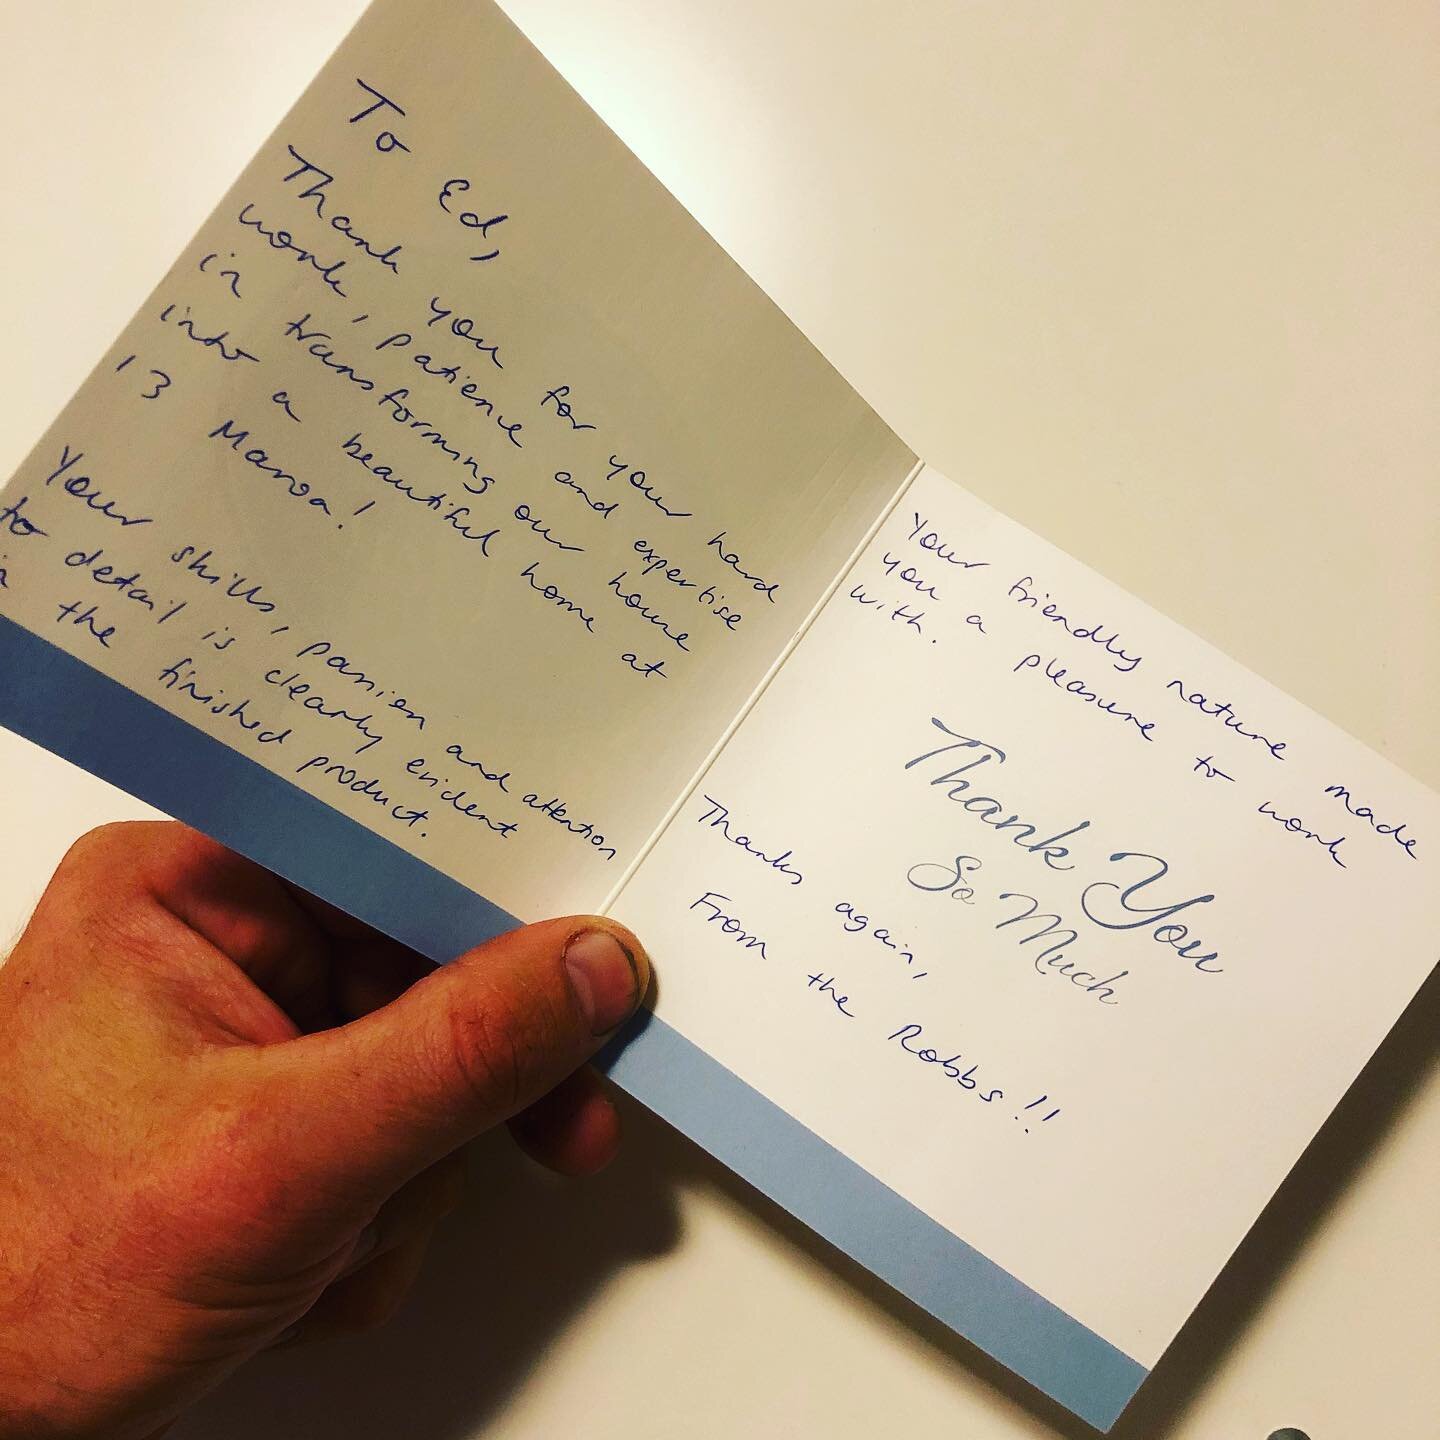 To Ed,
Thank you for your hard
work, patience and expertise
in transforming our house
into a beautiful home at
13 Maroa!
Your skills, passion and attention
to detail is clearly evident
in the finished product.
Your friendly nature made
you a pleasure to work
with.
Thank You
So Much
Thanks again,
From the Robbs!!